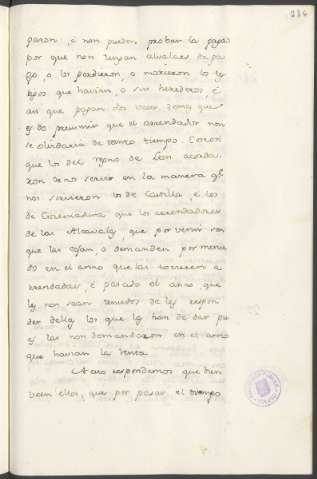 paron, e non pueden probar la paga
por que non tenian alvalaes de pa
go, o los perdieron, o murieron los te
tigos que havian, o sus herederos, e
asi que pagan dos veces
es de presumir que el arrendador non
se olvidaria de tanto tiempo.
que los del regno de Leon acorda
ron de nos servir en la manera qe
nos sirvieron los de Castilla, e los
de Estremadura que los arrendadores
de las Alcavalas, que por venir son
que las cojan, o demanden por menu
do en el anno que las tovieren a
rrendadas, e pasado el anno, que
les non sean tenudos de les respon
der della los que les han de dar pu
es las non demandaron en el anno
que havian la renta.
A esto respondemos que tien
veen ellos, que por pasar el tiempo